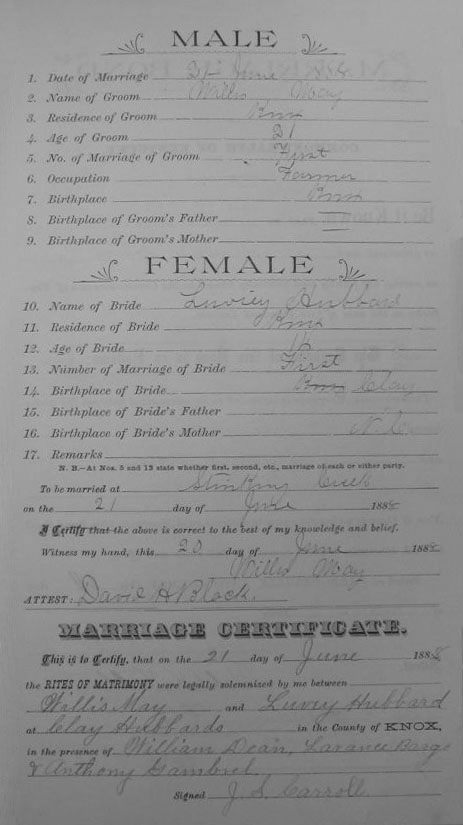 MALE
1. Date of Marriage 21 June 1888
2. Name of Groom Willis May
3. Residence of Groom Knox
4. Age of Groom 21
5. No. of Marriage of Groom First
6. Occupation Farmer
7. Birthplace Knox
8. Birthplace of Groom's Father
9. Birthplace of Groom's Mother
FEMALE
10. Name of Bride Luvicy Hubbard
11. Residence of Bride Knox
12. Age of Bride 16
13. Number of Marriage of Bride First
14. Birthplace of Bride Knox Clay
15. Birthplace of Bride's Father
16. Birthplace of Bride's Mother N.C.
17. Remarks
N. B.—At Nos. 5 and 13 state whether first, second, etc., marriage of each or either party.
To be married at Stinking Creek
on the 21 day of June 1888
I Certify that the above is correct to the best of my knowledge and belief.
Witness my hand, this 20 day of June 1888
Willis May
ATTEST: David H Black.
MARRIAGE CERTIFICATE.
This is to Certify, that on the 21 day of June 1888
the RITES OF MATRIMONY were legally solemnized by me between
Willis May and Luvicy Hubbard
at Clay Hubbards in the County of KNOX,
in the presence of William Dean,
& Anthony Gambrel.
Signed J. S. Carroll